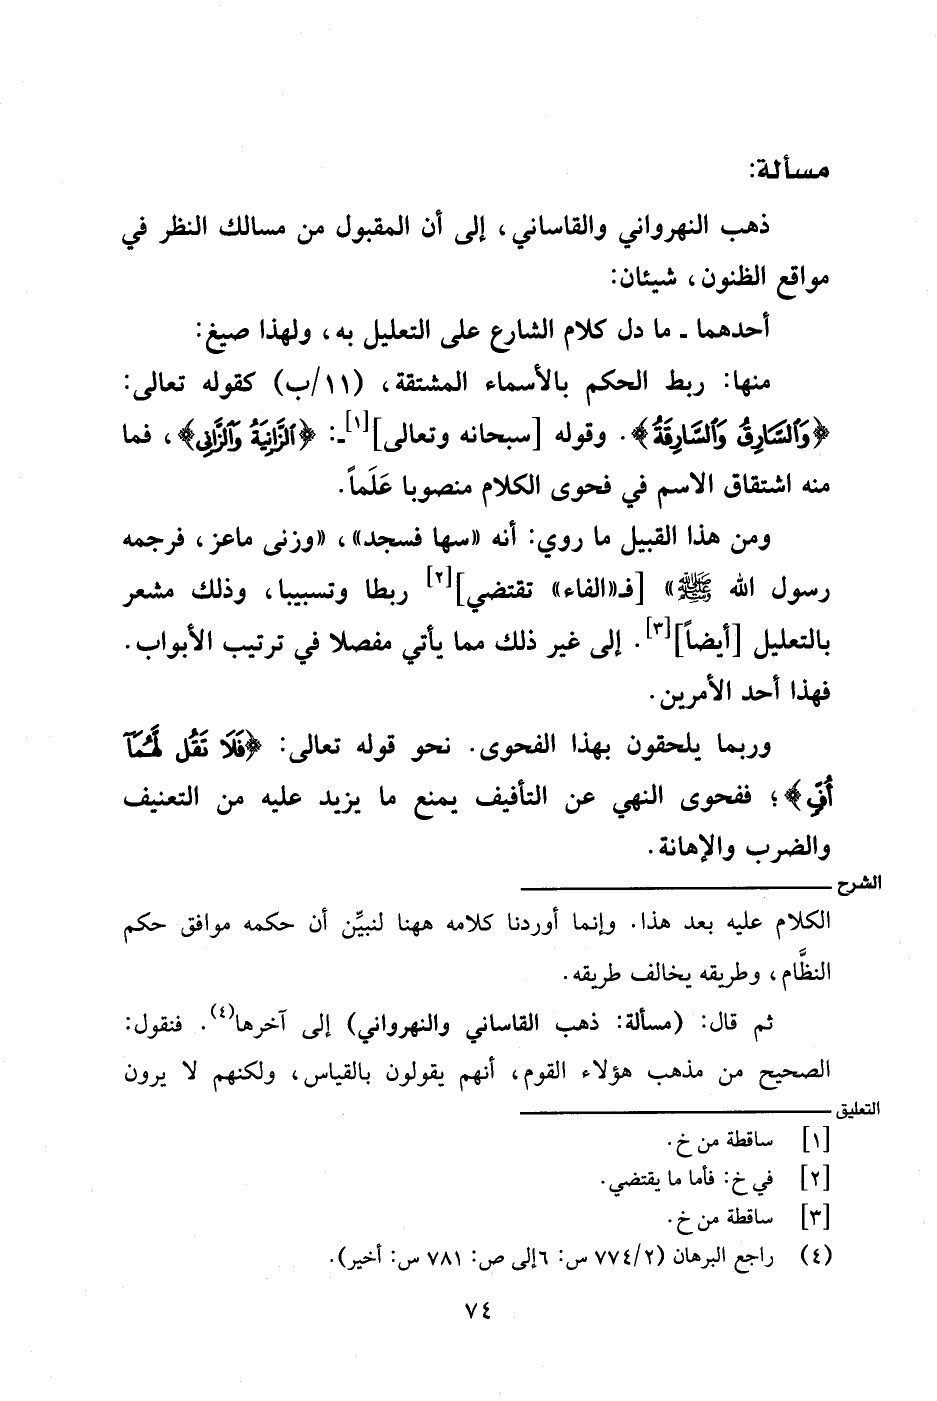 مسألة:
ذهب النهرواني والقاساني، إلى أن المقبول من مسالك النظر في
مواقع الظنون، شيئان:
أحدهما ـ ما دل كلام الشارع على التعليل به، ولهذا صيغ:
منها: ربط الحكم بالأسماء المشتقة، (١١/ب) كقوله تعالى:
﴿وَٱلسَّارِقُ وَٱلسَّارِقَةُ﴾. وقوله [سبحانه وتعالى][١]ـ: ﴿ٱلزَّانِيَةُ وَٱلزَّانِى﴾، فما
منه اشتقاق الاسم في فحوى الكلام منصوبا عَلَماً.
ومن هذا القبيل ما روي: أنه «سها فسجد»، «وزنى ماعز، فرجمه
رسول الله ﷺ» [فـ«الفاء» تقتضي][٢] ربطا وتسبيبا، وذلك مشعر
بالتعليل [أيضاً][٣]. إلى غير ذلك مما يأتي مفصلا في ترتيب الأبواب.
فهذا أحد الأمرين.
وربما يلحقون بهذا الفحوى. نحو قوله تعالى: ﴿فَلَا تَقُل لَّهُمَآ
أُفٍّ﴾؛ ففحوى النهي عن التأفيف يمنع ما يزيد عليه من التعنيف
والضرب والإهانة.
الشرح
الكلام عليه بعد هذا. وإنما أوردنا كلامه ههنا لنبيِّن أن حكمه موافق حكم
النظَّام، وطريقه يخالف طريقه.
ثم قال: (مسألة: ذهب القاساني والنهرواني) إلى آخرها(٤). فنقول:
الصحيح من مذهب هؤلاء القوم، أنهم يقولون بالقياس، ولكنهم لا يرون
التعليق
[١] ساقطة من خ.
[٢] في خ: فأما ما يقتضي.
[٣] ساقطة من خ.
(٤) راجع البرهان (٧٧٤/٢ س: ٦إلى ص: ٧٨١ س: أخير).
٧٤